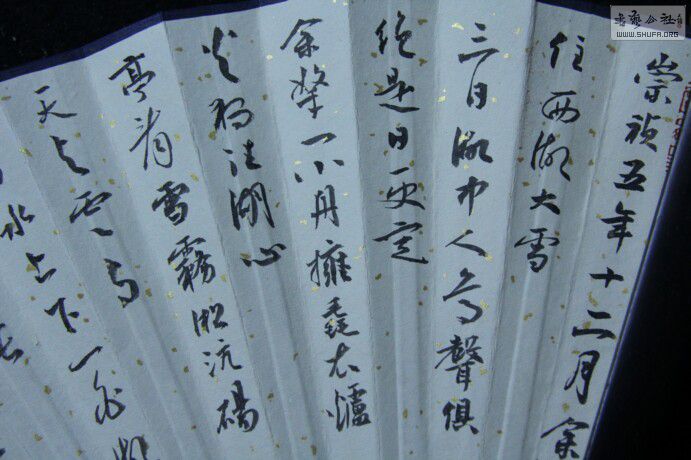 崇祯五年十二月余
住西湖大雪
三日湖中人鸟聲俱
绝是日更定
余拏一小舟擁毳衣爐
火独往湖心
亭看雪霧凇沆碭
天与雲与
水上下一白
書藝公社
WWW.SHUFA.ORG